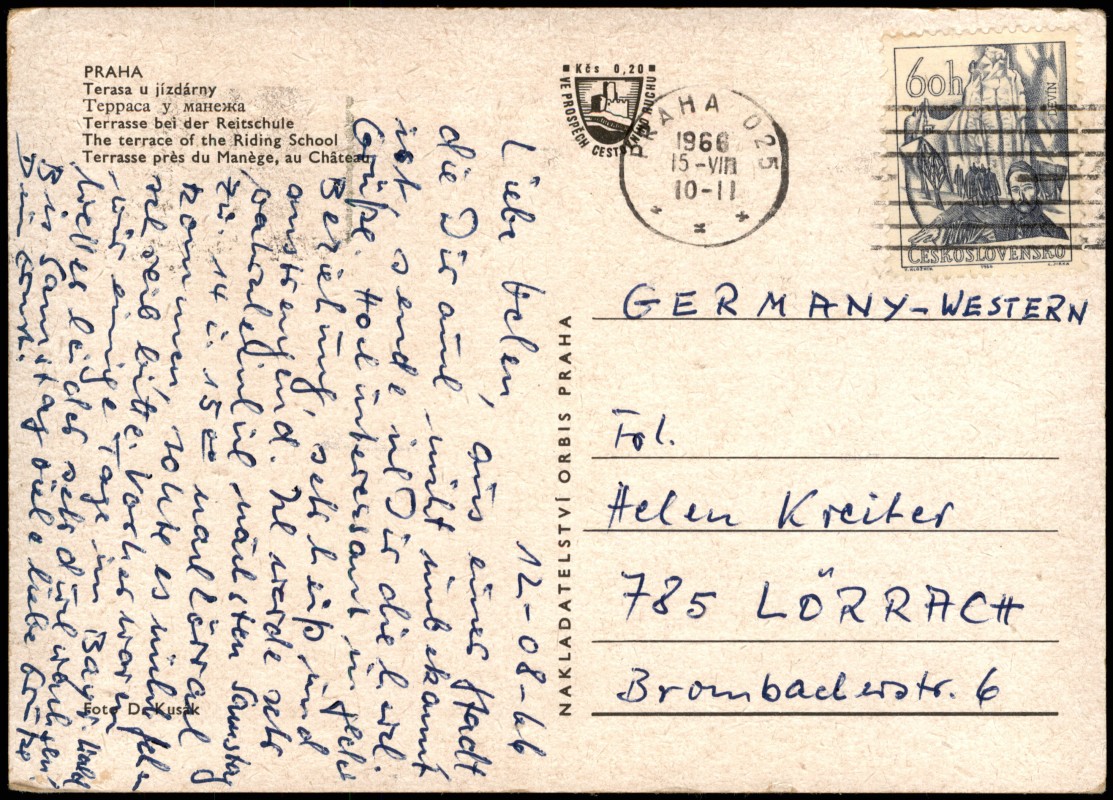 PRAHA
Terasa u jízdárny
Терраса у манежа
Terrasse bei der Reitschule
The terrace of the Riding School
Terrasse près du Manège, au Château
Kčs 0,20
VE PROSPĚCH CESTOVNÍHO RUCHU
PRAHA 025
1966
15-VIII
10-11
60h
ČESKOSLOVENSKO
12-08-66
Liebe Helen, aus einer Stadt
die Dir auch nicht unbekannt
ist sende ich Dir die herzl.
Grüße. Hochinteressant in jeder
Beziehung, sehr heiß und
anstrengend. Ich werde
wahrscheinlich nächsten Samstag
zw. 14 u. 15 00 nach Lörrach
kommen, sollte es nicht gehn
schreib bitte. Vorher waren
wir einige Tage im Bayr. Wald
Wetter leider sehr durchwachsen!
Bis Samstag viele liebe Grüße
Dein
GERMANY-WESTERN
Frl.
Helen Kreiter
785 LÖRRACH
Brombacherstr. 6
NAKLADATELSTVÍ ORBIS PRAHA
Foto D. Kusák